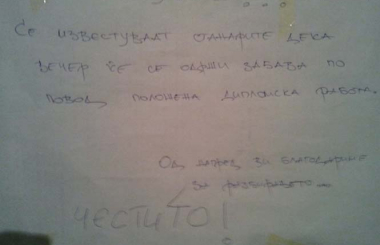 Се известуваат станарите дека
вечер ќе се одржи забава по
повод положена дипломска работа.
Од напред ви благодариме
за разбирањето
ЧЕСТИТО!